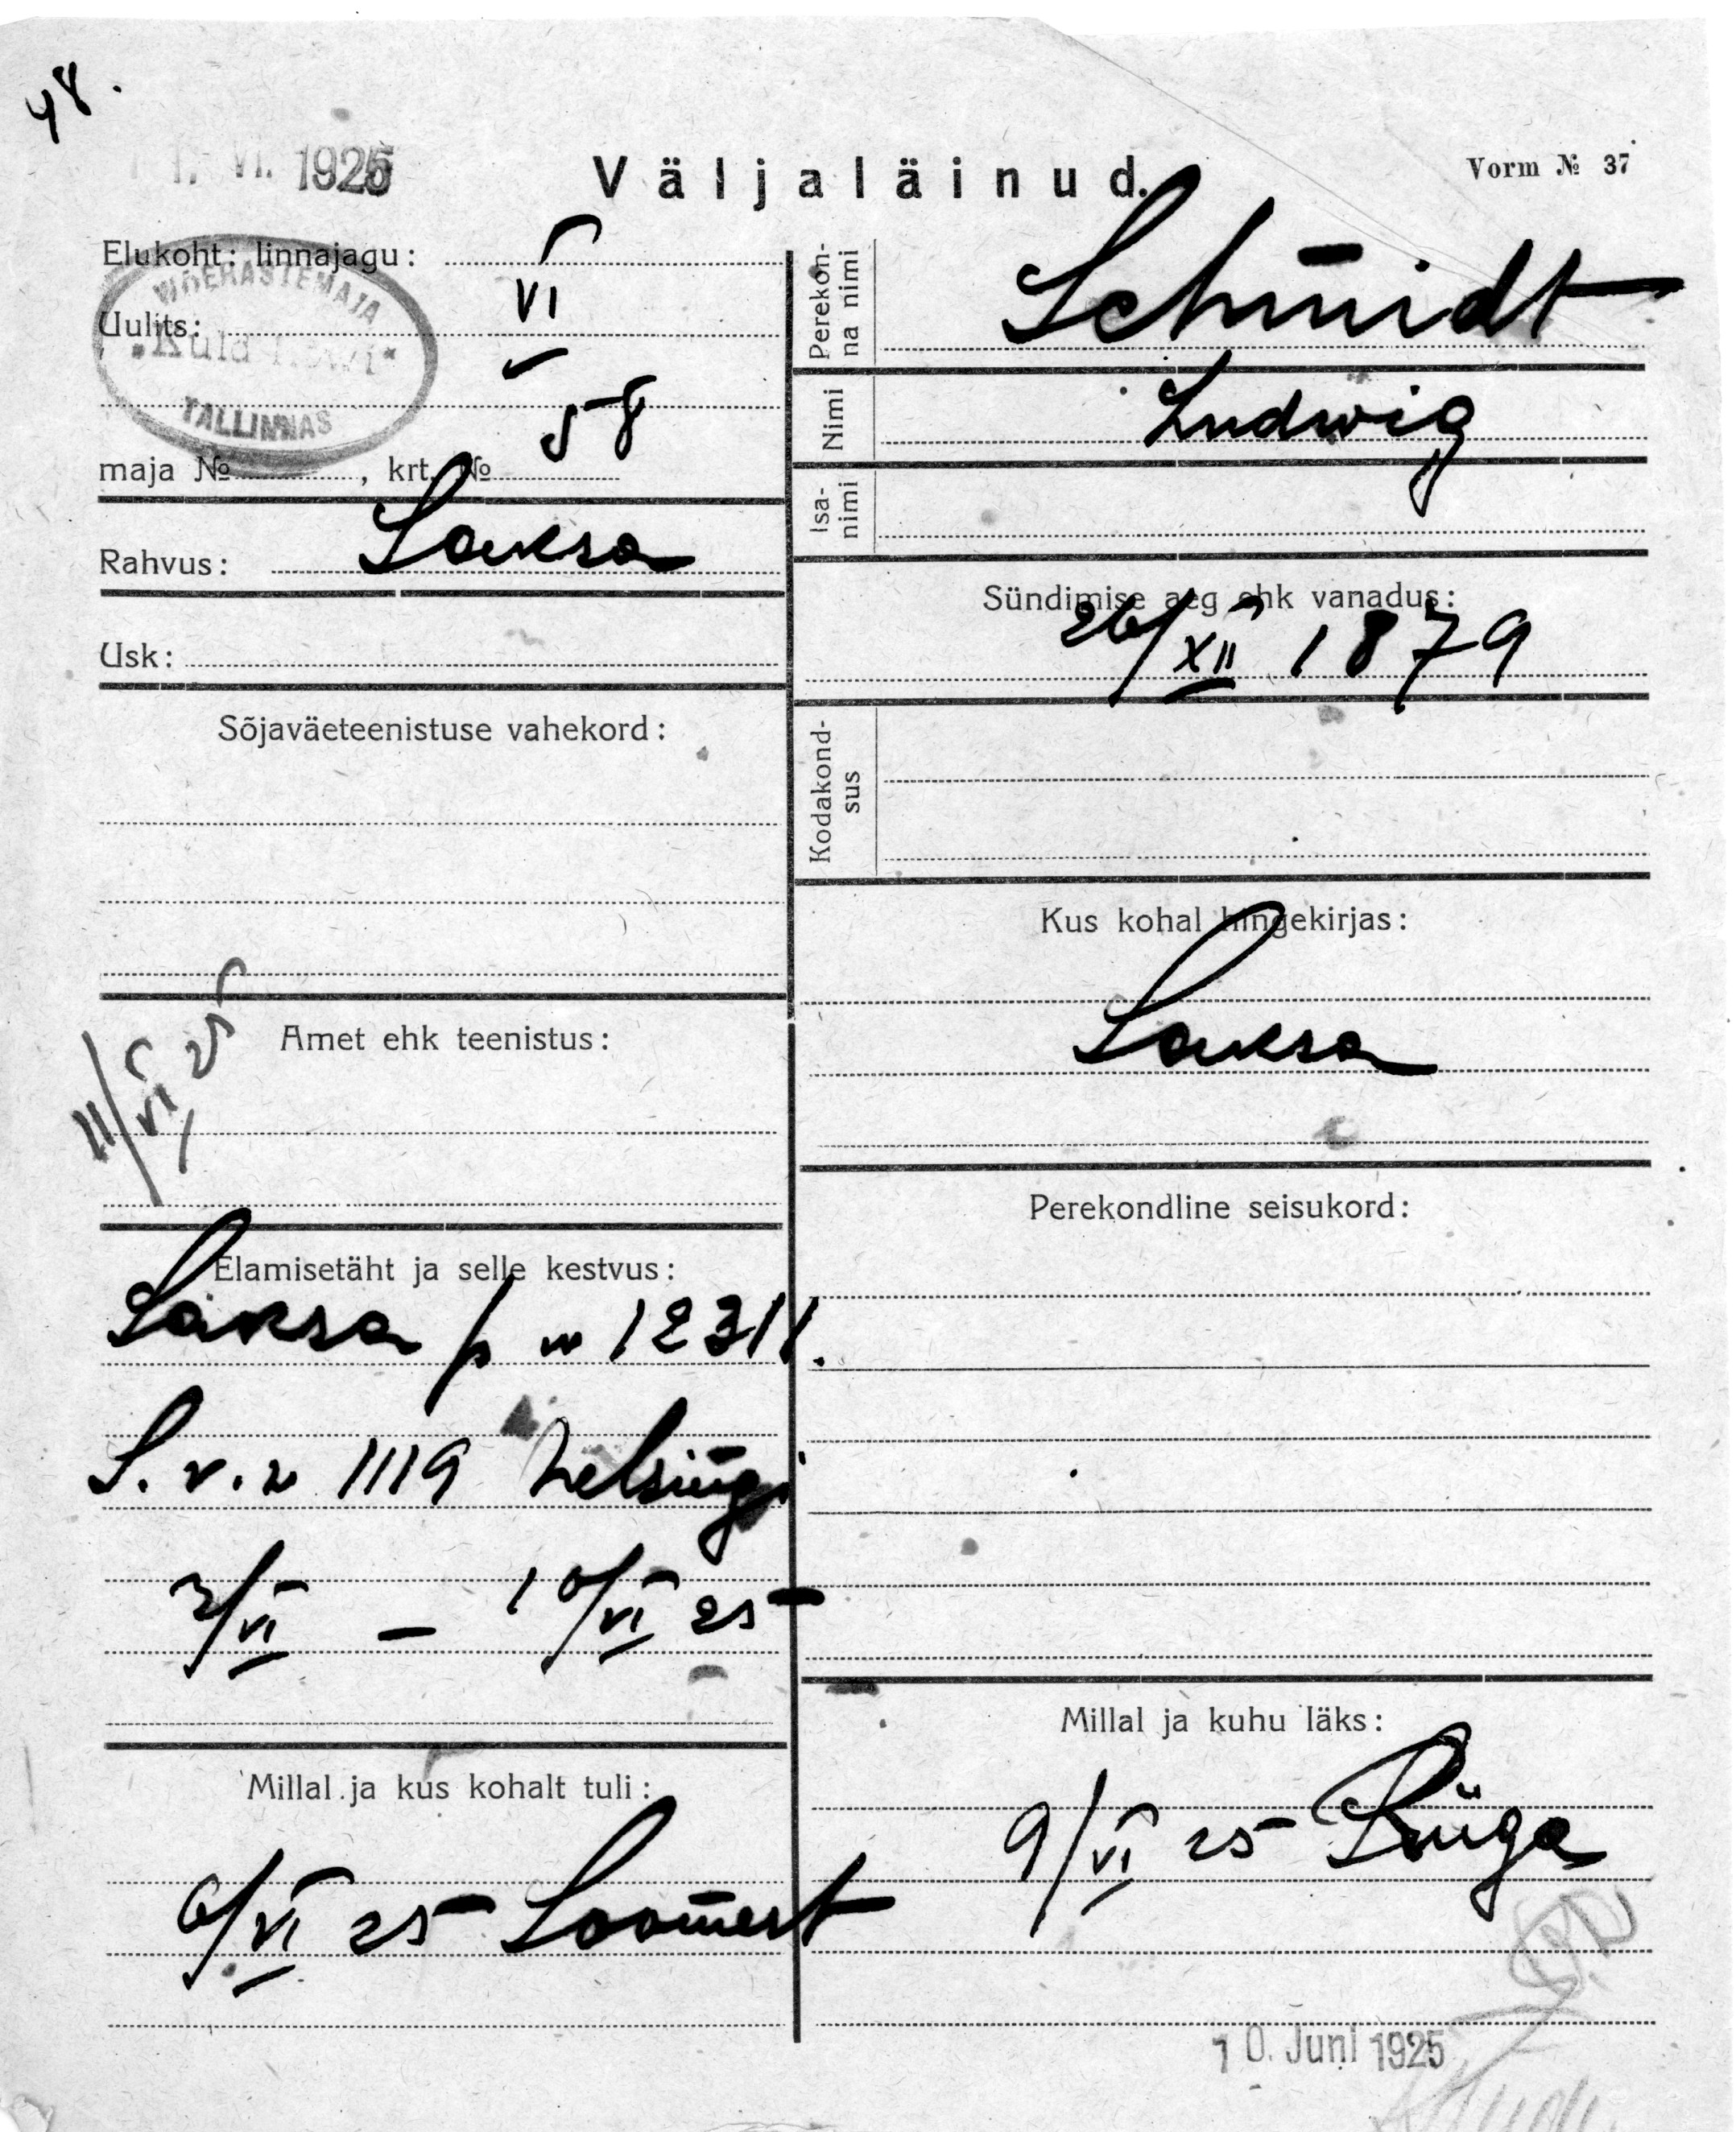 48.
VI. 1925
Väljaläinud.
Vorm № 37
Elukoht: linnajagu:
VI
WÕERASTEMAJA
"Kuld Lõwi"
TALLINNAS
Uulits:
58
maja № , krt. №
Rahvus: Saksa
Usk:
Sõjaväeteenistuse vahekord:
Amet ehk teenistus:
11/VI 25
Elamisetäht ja selle kestvus:
Saksa p N 12311.
S. v. N 1119 Helsingi
2/VI – 10/VI 25
Millal ja kus kohalt tuli:
6/VI 25 Soomest
Perekon-
na nimi
Schmidt
Nimi
Ludwig
Isa-
nimi
Sündimise aeg ehk vanadus:
26/XII 1879
Kodakond-
sus
Kus kohal hingekirjas:
Saksa
Perekondline seisukord:
Millal ja kuhu läks:
9/VI 25 Riiga
10. Juni 1925